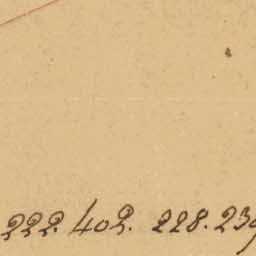 222. 402. 228. 239